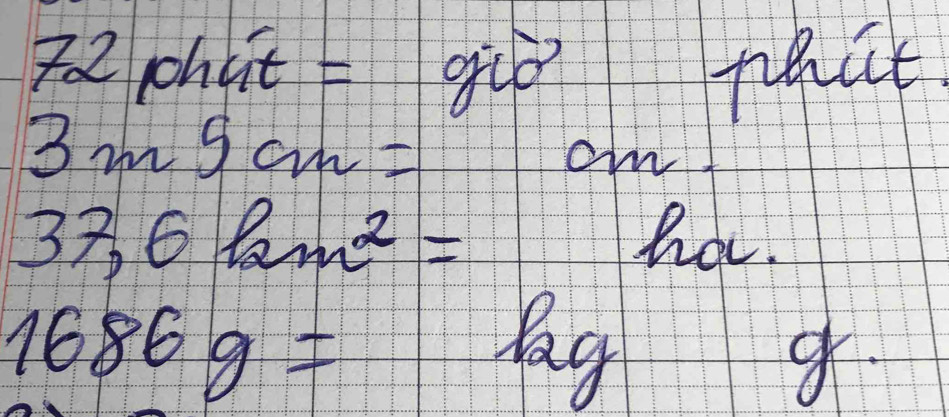 72 phút = giờ phút.
3 m 5 cm = cm.
37,6 km² = ha.
1686 g = kg g.